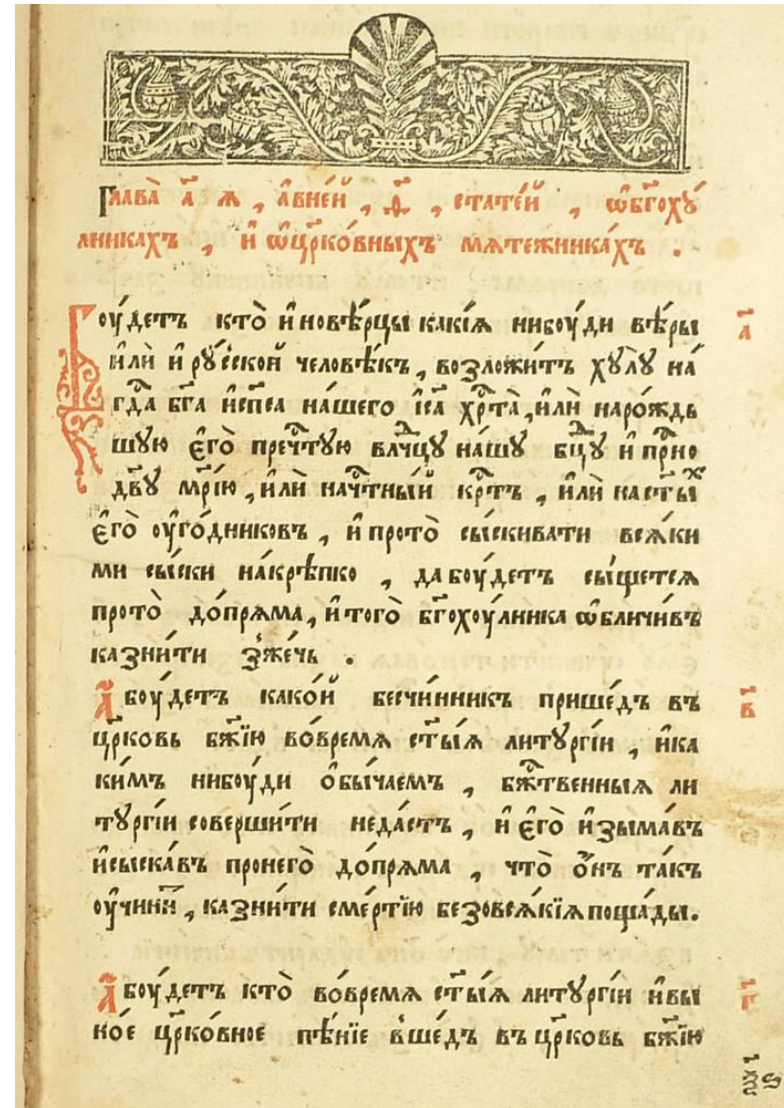 Глава̀ а҃ я , а҆вне́й , ѳ҃ , стате́й , ѡ҆бг҃охꙋ́
лникахъ , и҆ ѡ҆цр҃ко́вныхъ мѧте́жникахъ .
Боу́детъ кто̀ и҆новѣ́рцы какі́ѧ нибоу́ди вѣ́ры
и҆лѝ и҆ рꙋ́сской человѣ́къ , возложи́тъ хꙋлꙋ̀ на́
гдⷭ҇а бг҃а и҆сп҃са на́шего і҆са҃ хрⷭ҇та̀ , и҆лѝ наро́ждь
шꙋю є҆го̀ пречⷭ҇тꙋю влⷣчцꙋ на́шꙋ бцⷣꙋ и҆ прⷭ҇но
дв҃ꙋ мр҃і́ю , и҆лѝ начⷭ҇тны́й крⷭ҇тъ , и҆лѝ наст҃ы́ⷯ
є҆го̀ оу҆го́дниковъ , и҆ прото̀ сы́скивати всѧ́ки
ми сы́ски на́крѣпко , да боу́детъ сы́щетсѧ
прото̀ до́прѧма , и҆ того̀ бг҃охоу́лника ѡ҆бличи́въ
казни́ти зже́чь .
А҆ боу́детъ како́й бесчи́нникъ прише́дъ въ
цр҃ковь бж҃їю во́времѧ ст҃ы́ѧ литꙋргі́и , и҆ка
ки́мъ нибоу́ди ѻ҆бы́чаемъ , бжⷭ҇твенныѧ ли
тꙋргі́и соверши́ти неда́стъ , и҆ є҆го̀ и҆зыма́въ
и҆сыска́въ пронего̀ до́прѧма , что̀ ѻ҆́нъ та́къ
оу҆чини́тъ , казни́ти сме́ртїю безовсѧ́кїѧ поща́ды .
А҆ боу́детъ кто̀ во́времѧ ст҃ы́ѧ литꙋргі́и и҆вы
но́е цр҃ко́вное пѣ́нїе вше́дъ въ цр҃ковь бж҃їю
а҃
в҃
г҃